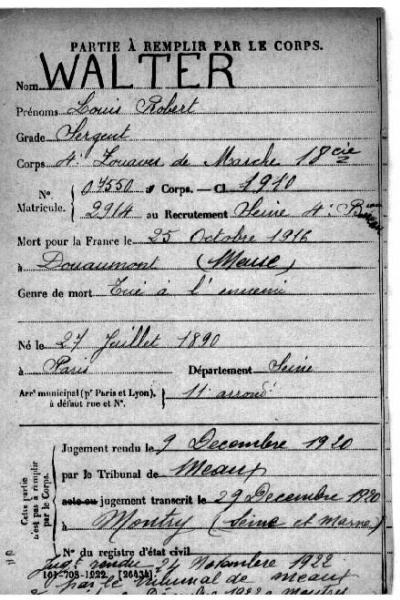 PARTIE À REMPLIR PAR LE CORPS.
Nom WALTER
Prénoms Louis Robert
Grade Sergent
Corps 4e Zouaves de Marche 18 cie
N° Matricule. 07550 au Corps. — Cl. 1910
2914 au Recrutement Seine 4e Bureau
Mort pour la France le 25 Octobre 1916
à Douaumont (Meuse)
Genre de mort Tué à l'ennemi
Né le 27 Juillet 1890
à Paris Département Seine
Arrt municipal (pr Paris et Lyon), 11e arrondt
à défaut rue et N°.
Cette partie n'est pas à remplir par le Corps.
Jugement rendu le 9 Decembre 1920
par le Tribunal de Meaux
acte ou jugement transcrit le 29 Decembre 1920
à Montry (Seine et Marne)
N° du registre d'état civil
Jugt rendu 24 Novembre 1922
par le Tribunal de Meaux
101-708-1922. [26434]
1922 à Montry